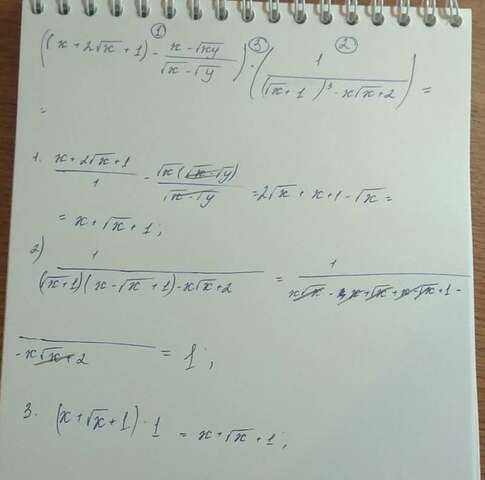 ① ③ ②
((x + 2√x + 1) - (x - √xy)/(√x - √y)) · (1/((√x + 1)³ - x√x + 2)) =
=
1. (x + 2√x + 1)/1 - (√x(√x - √y))/(√x - √y) = 2√x + x + 1 - √x =
= x + √x + 1;
2) 1/((√x + 1)(x - √x + 1) - x√x + 2) = 1/(x√x - x + √x + x - √x + 1 -
- x√x + 2) = 1;
3. (x + √x + 1) · 1 = x + √x + 1;